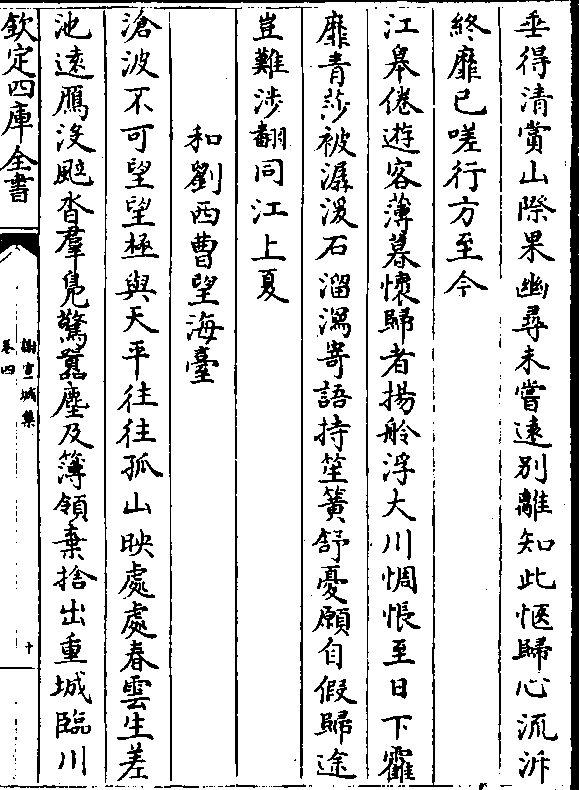 垂得清賞山際果幽尋未嘗遠別離知此愜歸心流泝
終靡已嗟行方至今
江皋倦遊客薄暮懷歸者揚舲浮大川惆悵至日下靃
靡青莎被潺湲石溜瀉寄語持笙簧舒憂願自假歸途
豈難涉翻同江上夏
和劉西曹望海臺
滄波不可望望極與天平往往孤山映處處春雲生差
池遠鴈没颯沓羣鳧驚囂塵及簿領棄捨出重城臨川
欽定四庫全書
謝宣城集
卷四
十